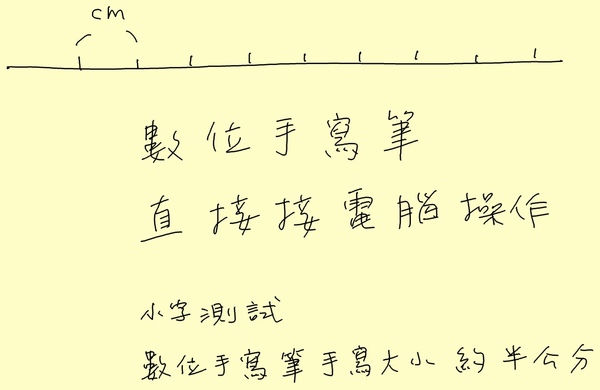 cm
數位手寫筆
直接接電腦操作
小字測試
數位手寫筆手寫大小約半公分